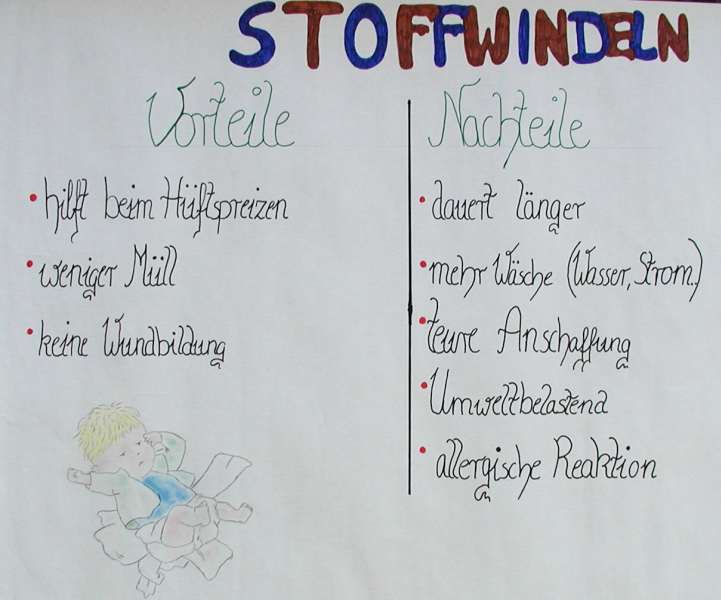 STOFFWINDELN
Vorteile
• hilft beim Hüftspreizen
• weniger Müll
• keine Wundbildung
Nachteile
• dauert länger
• mehr Wäsche (Wasser, Strom.)
• teure Anschaffung
• Umweltbelastend
• allergische Reaktion